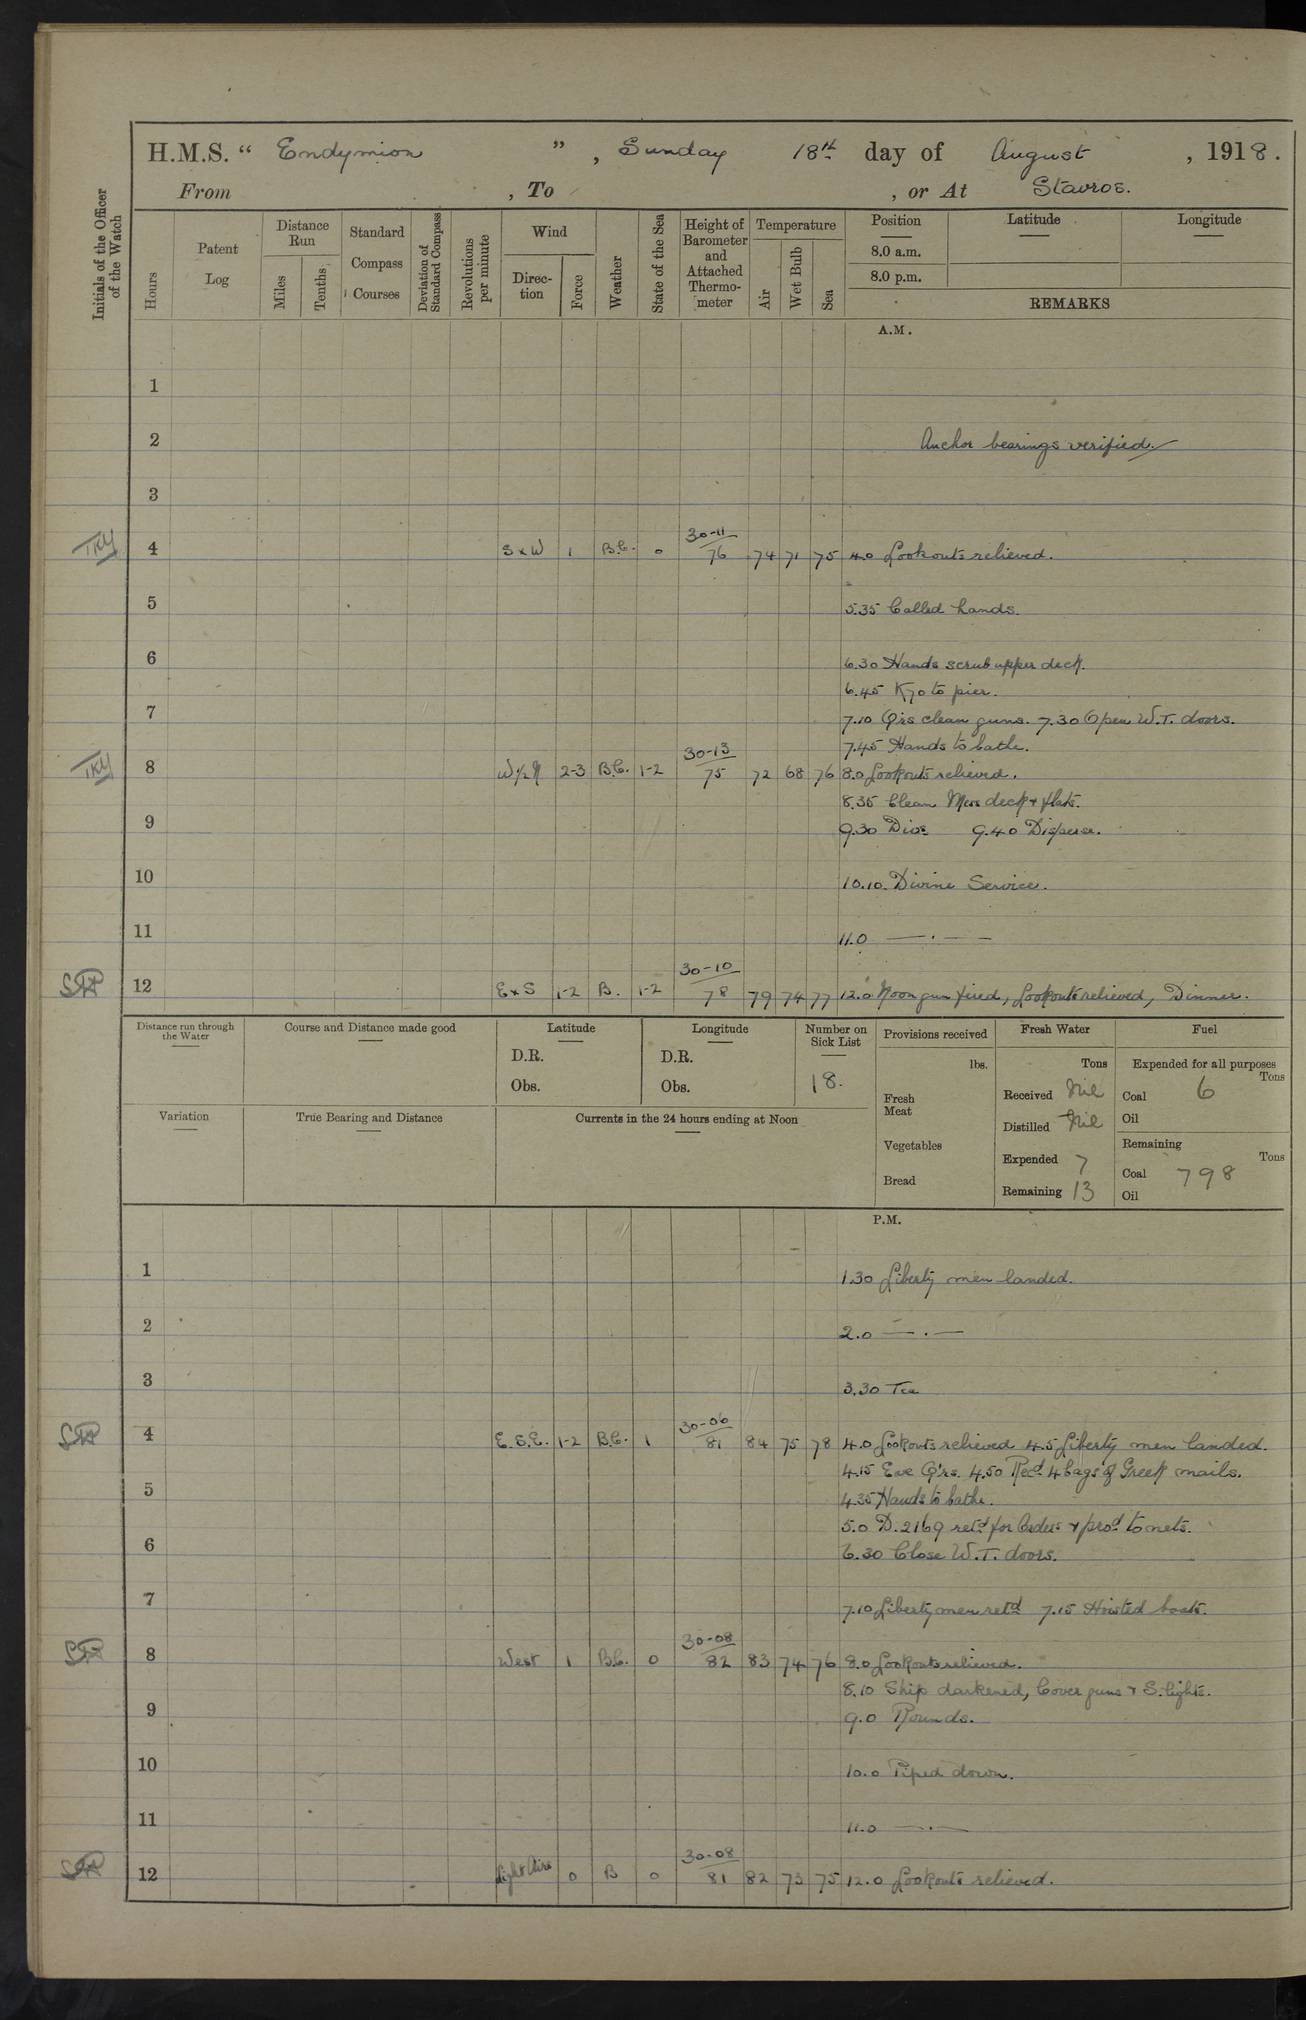 H.M.S. “ Endymion ” , Sunday 18th day of August , 1918.
From , To , or At Stavros.
Initials of the Officer of the Watch
Hours
Patent Log
Distance Run
Miles
Tenths
Standard Compass Courses
Deviation of Standard Compass
Revolutions per minute
Wind
Direc-tion
Force
Weather
State of the Sea
Height of Barometer and Attached Thermo-meter
Temperature
Air
Wet Bulb
Sea
Position
8.0 a.m.
8.0 p.m.
Latitude
Longitude
REMARKS
A.M.
1
2 Anchor bearings verified.
3
30-11
4 S x W 1 B.C. 0 76 74 71 75 4.0 Lookouts relieved.
5 5.35 Called hands.
6 6.30 Hands scrub upper deck.
6.45 to pier.
7 7.10 Q'rs clean guns. 7.30 Open W.T. doors.
30-13 7.45 Hands to bathe.
8 W½N 2-3 B.C. 1-2 75 72 68 76 8.0 Lookouts relieved.
8.35 Clean Mess deck & flats.
9 9.30 Divs. 9.40 Disperse.
10 10.10. Divine Service.
11 11.0 — . — —
30-10
12 E x S 1-2 B. 1-2 78 79 74 77 12.0 Noon gun fired, Lookouts relieved, Dinner.
Distance run through the Water
Course and Distance made good
Latitude
D.R.
Obs.
Longitude
D.R.
Obs.
Number on Sick List
18.
Provisions received
lbs.
Fresh Meat
Vegetables
Bread
Fresh Water
Tons
Received Nil
Distilled Nil
Expended 7
Remaining 13
Fuel
Expended for all purposes
Tons
Coal 6
Oil
Remaining
Tons
Coal 798
Oil
Variation
True Bearing and Distance
Currents in the 24 hours ending at Noon
P.M.
1 1.30 Liberty men landed.
2 2.0 — . —
3 3.30 Tea
30-06
4 E.S.E. 1-2 B.C. 1 81 84 75 78 4.0 Lookouts relieved 4.5 Liberty men landed.
4.15 Eve Q'rs. 4.50 Recd 4 bags of Greek mails.
5 4.35 Hands to bathe.
5.0 D.2169 retd for Orders & procd to nets.
6 6.30 Close W.T. doors.
7 7.10 Liberty men retd 7.15 Hoisted boats.
30-08
8 West 1 B.C. 0 82 83 74 76 8.0 Lookouts relieved.
8.10 Ship darkened, Cover guns & S. lights.
9 9.0 Rounds.
10 10.0 Piped down.
11 11.0 — . —
30-08
12 Light Airs 0 B 0 81 82 73 75 12.0 Lookouts relieved.